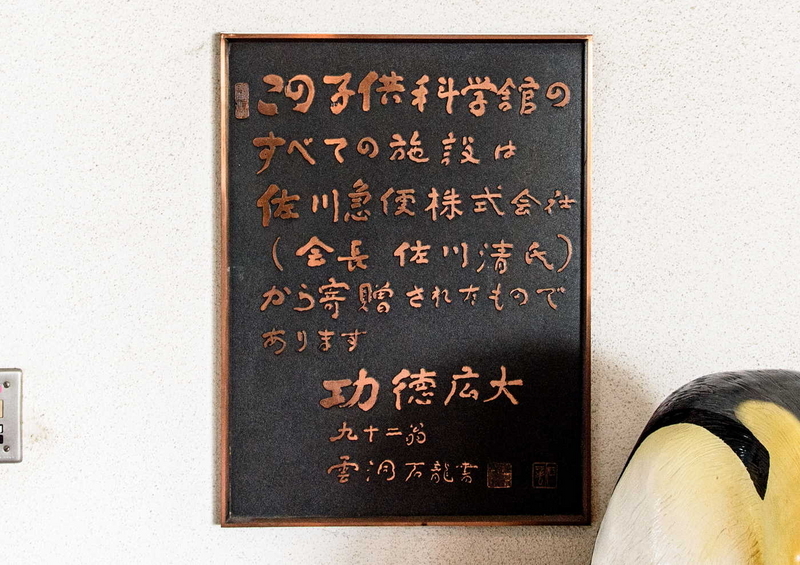 この子供科学館の
すべての施設は
佐川急便株式会社
(会長 佐川清氏)
から寄贈されたもので
あります
功徳広大
九十二翁
雲洞石龍書